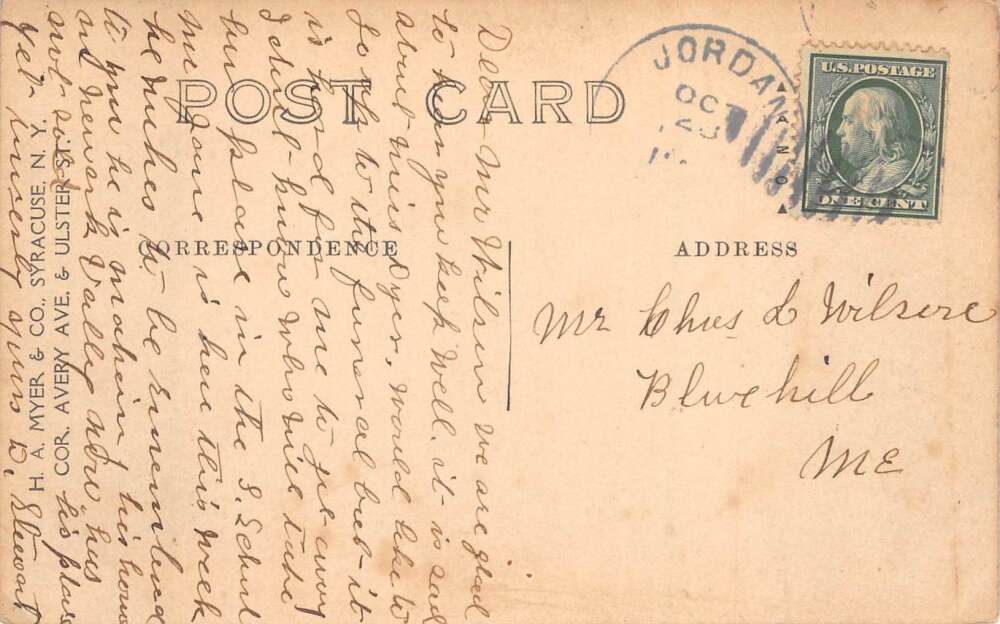 POST CARD
CORRESPONDENCE
ADDRESS
JORDAN
OCT
U.S. POSTAGE
ONE CENT
H. A. MYER & CO., SYRACUSE, N. Y.
COR. AVERY AVE. & ULSTER ST.
Mr Chas L Wilson
Bluehill
ME
Dear Mr Wilson we are glad
to hear you keep well. it is sad
about Miss Dyer. would like to
to the funeral but it
is hard for me to get away
I don't know who will take
her place in the S. School
Mr Jane is here this week
he wishes to be remembered
to you he is his home
in Newark Valley now, has
not sold his place
yet Sincerely yours D. Stewart